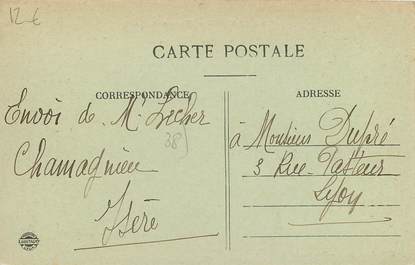 12 €
CARTE POSTALE
CORRESPONDANCE
ADRESSE
Envoi de Mr Lecher
38
Chamagnieu
Isère
à Monsieur Dupré
3 Rue Pasteur
Lyon